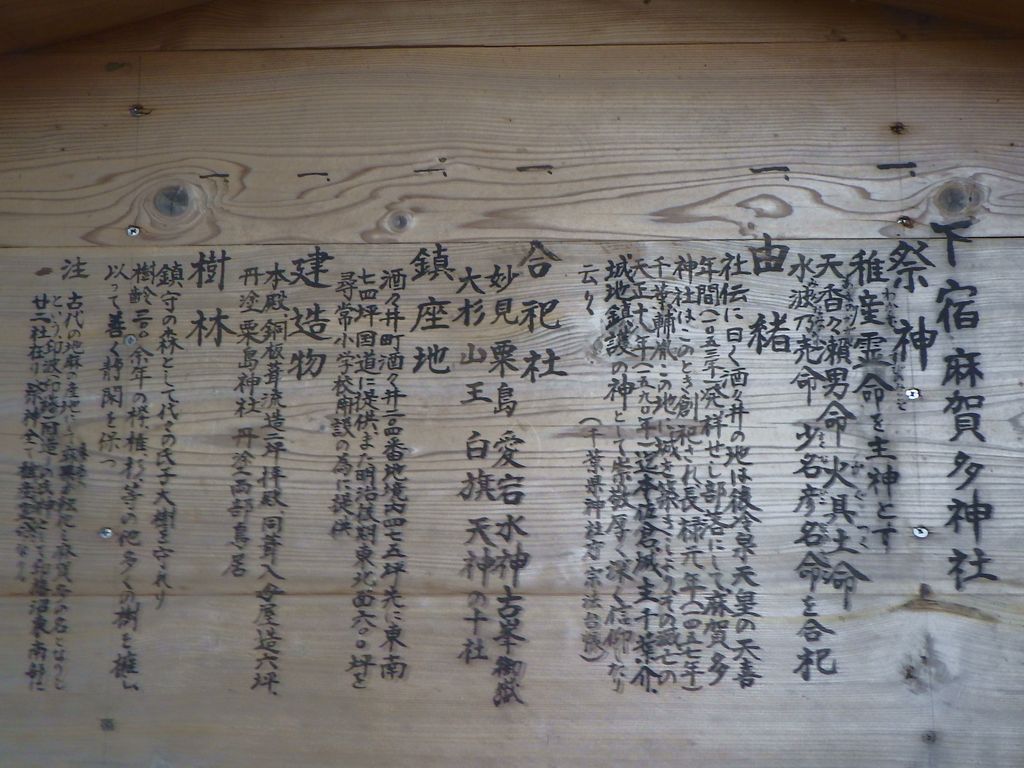 下宿麻賀多神社
一、祭神
稚産霊命を主神とす
天香々瀬男命 火具土命
水波乃売命 少名彦名命を合祀
一、由緒
社伝に曰く酒々井の地は後冷泉天皇の天喜
年間(一〇五三年)発祥せし部落にして麻賀多
神社は、このとき創祀され長 元年(一 五七年)
千葉輔胤この地に城を築きしよりその
天正十八年(一五九〇年)迄本佐倉城主千葉介、
城地鎮護の神として崇敬厚く深く信仰したり
云々 (千葉県神社庁宗法台帳)
一、合祀社
妙見 粟島 愛宕 水神 古峯 御嶽
大杉 山王 白旗 天神の十社
一、鎮座地
酒々井町酒々井一二四番地境内四七五坪先に東南
七四坪国道に提供また明治後期東北面六〇〇坪を
尋常小学校開設の為に提供
一、建造物
本殿、銅板葺流造二坪 拝殿 同葺入母屋造六坪、
丹塗粟島神社 丹塗両部鳥居
一、樹林
鎮守の森として代々の氏子大樹を守れり
樹齢三〇〇余年の 椎、杉、等の他多くの樹を擁し
以って善く静閑を保つ
注 古代の地麻の産地にて 麻賀多の名となりと
という印波国 印旛沼東南部に
廿二社在り祭神全て